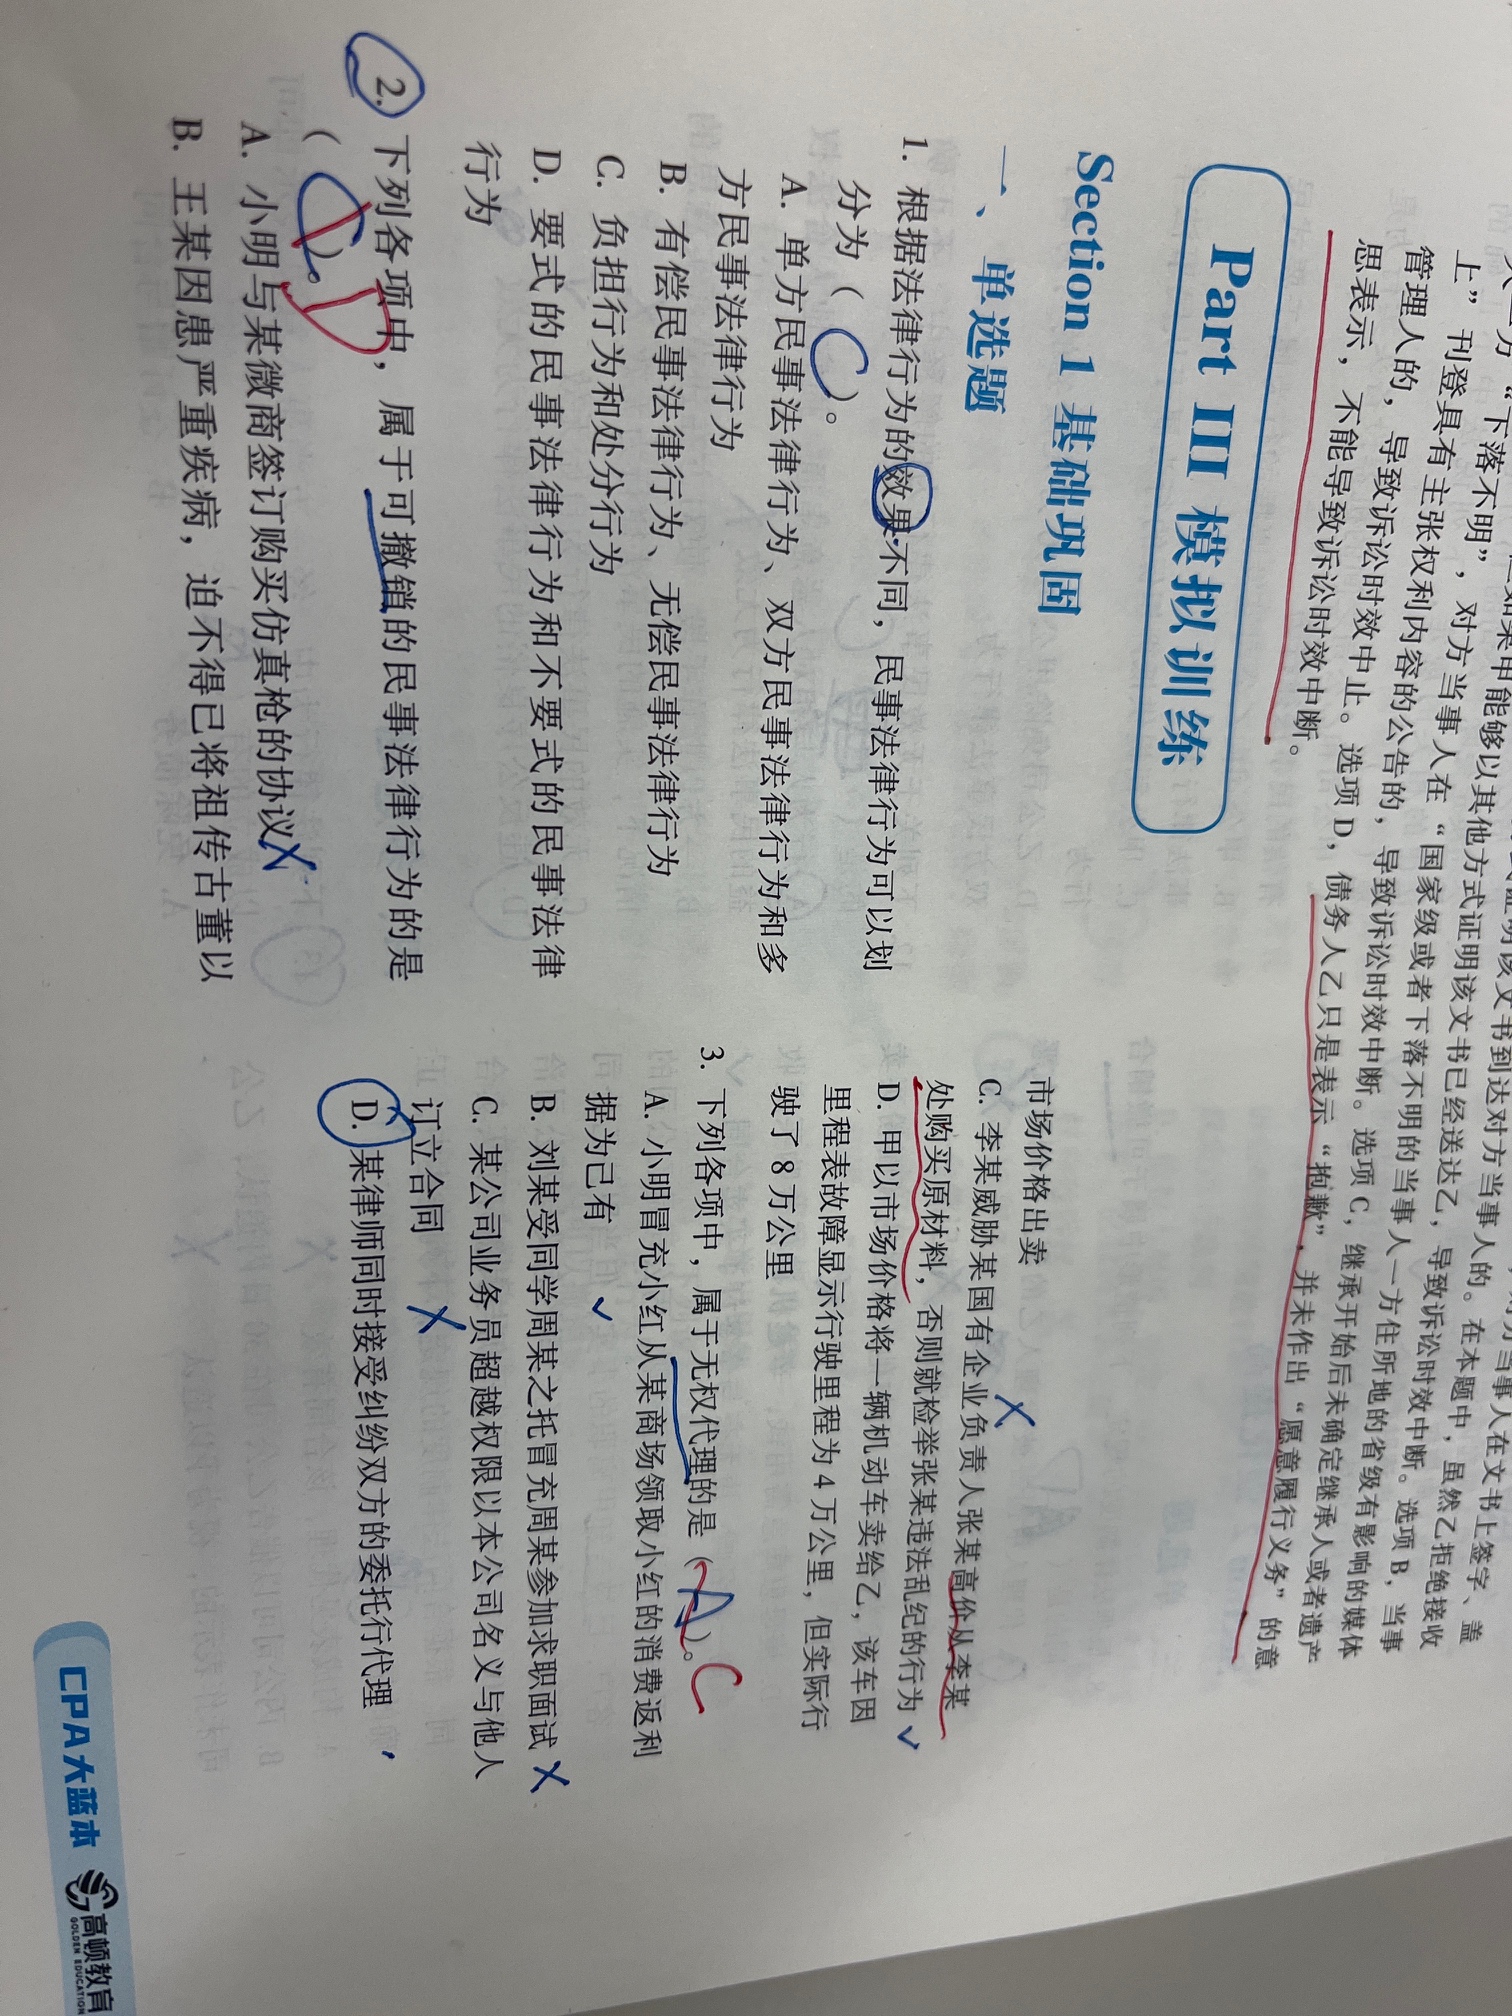 上”刊登具有主张权利内容的公告的，导致诉讼时效中断。选项 C，继承开始后未确定继承人或者遗产
管理人的，导致诉讼时效中止。选项 D，债务人乙只是表示“抱歉”，并未作出“愿意履行义务”的意
思表示，不能导致诉讼时效中断。
Part III 模拟训练
Section 1 基础巩固
一、单选题
1. 根据法律行为的效果不同，民事法律行为可以划
分为（ C ）。
A. 单方民事法律行为、双方民事法律行为和多
方民事法律行为
B. 有偿民事法律行为、无偿民事法律行为
C. 负担行为和处分行为
D. 要式的民事法律行为和不要式的民事法律
行为
2. 下列各项中，属于可撤销的民事法律行为的是
（ ）。 D
A. 小明与某微商签订购买仿真枪的协议 X
B. 王某因患严重疾病，迫不得已将祖传古董以
市场价格出卖 X
C. 李某威胁某国有企业负责人张某高价从李某
处购买原材料，否则就检举张某违法乱纪的行为 ✓
D. 甲以市场价格将一辆机动车卖给乙，该车因
里程表故障显示行驶里程为 4 万公里，但实际行
驶了 8 万公里
3. 下列各项中，属于无权代理的是（ A ）。 C
A. 小明冒充小红从某商场领取小红的消费返利
据为己有 ✓
B. 刘某受同学周某之托冒充周某参加求职面试 X
C. 某公司业务员超越权限以本公司名义与他人
订立合同 X
D. 某律师同时接受纠纷双方的委托行代理
CPA大蓝本 高顿教育
GOLDEN EDUCATION